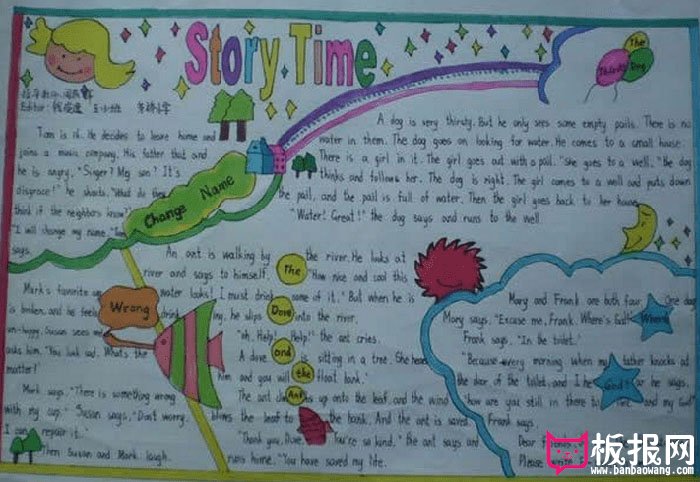 Story Time
The
Thirsty
Dog
Editor:
Tom is
He decides to leave home and
joins a music company. His father that and
he is angry. "Singer! My son! It's
disgrace!" he shouts. "What do they
think if the neighbors know"
"I will change my name."
says.
Change Name
A dog is very thirsty. But he only sees some empty pails. There is no
water in them. The dog goes on looking for water. He comes to a small house.
There is a girl in it. The girl goes out with a pail. "She goes to a well." the dog
thinks and follows her. The dog is right. The girl comes to a well and puts down
the pail, and the pail is full of water. Then the girl goes back to her house.
"Water! Great!" the dog says and runs to the well.
Mark's favorite
is broken, and he feels
un-happy. Susan sees
asks him. "You look sad. What's the
matter!"
Mark says. "There is something wrong
with my cup." Susan says, "Don't worry.
I can repair it."
Then Susan and Mark laugh.
Wrong
An ant is walking by the river. He looks at
river and says to himself. "How nice and cool this
water looks! I must drink some of it." But when he is
drinking, he slips into the river.
"oh, Help! Help!" the ant cries.
A dove is sitting in a tree. She
him and you will the float bank."
The ant up onto the leaf and the wind
blows the leaf to the bank. And the ant is saved.
"Thank you, Dove. You're so kind." the ant says and
runs home. "You have saved my life.
The
Dove
and
the
Ant
Mary and Frank are both four. One
Mary says. "Excuse me, Frank. Where's God?"
Frank says. "In the toilet."
"Because every morning when my father knocks at
the door of the toilet, and he says.
"how are you still in there
my God"
Frank says.
Dear
Please write
Where
God
板报网
www.banbaowang.com